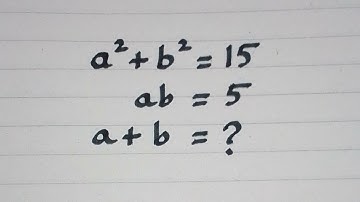 a² + b² = 15
ab = 5
a + b = ?